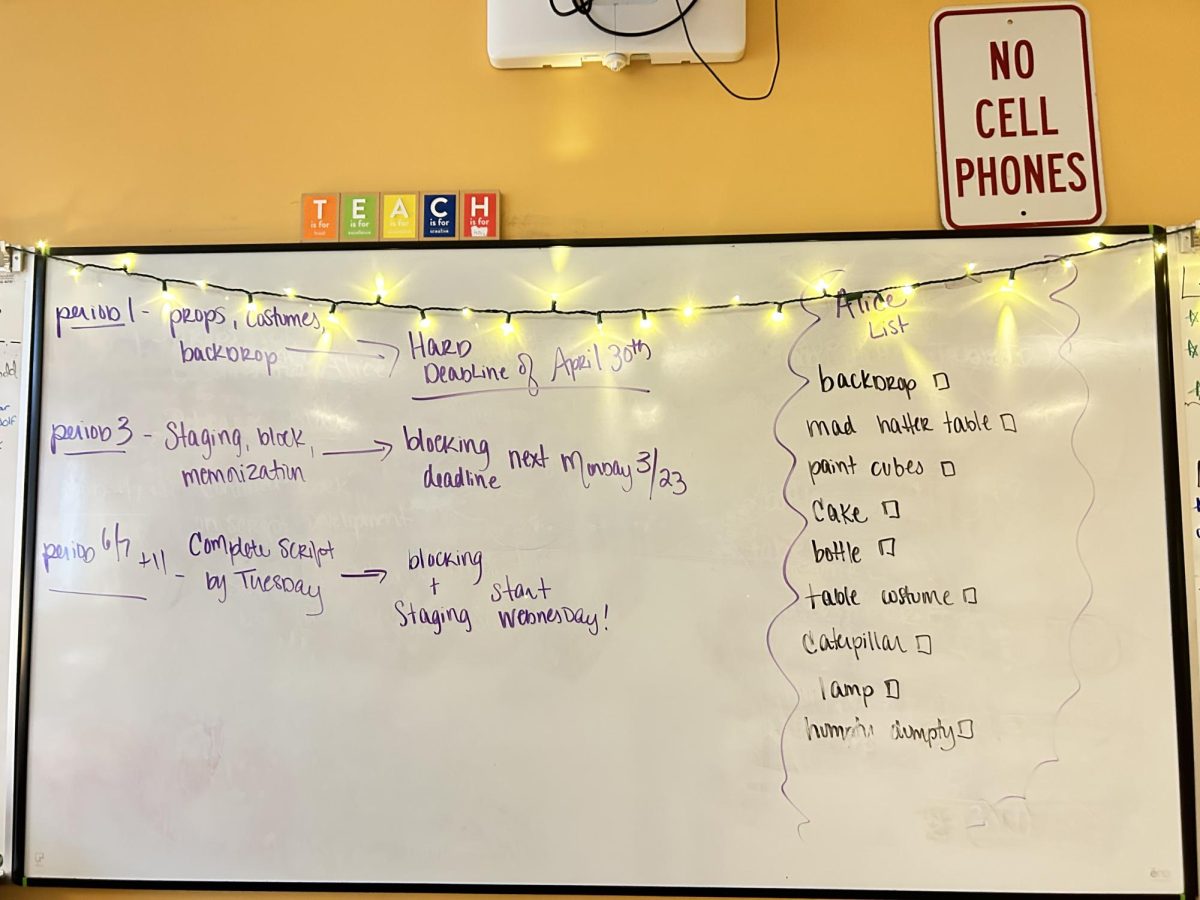 NO
CELL
PHONES
T E A C H
is for is for is for is for is for
excellence creative
period 1 - props, Costumes,
backdrop
HARD
Deadline of April 30th
period 3 - Staging, block,
memorization
blocking next Monday 3/23
deadline
period 6/7 +11 - Complete Script
by Tuesday
blocking
+
Staging start
Wednesday!
Alice
List
backdrop
mad hatter table
paint cubes
Cake
bottle
table costume
Caterpillar
lamp
dumpty